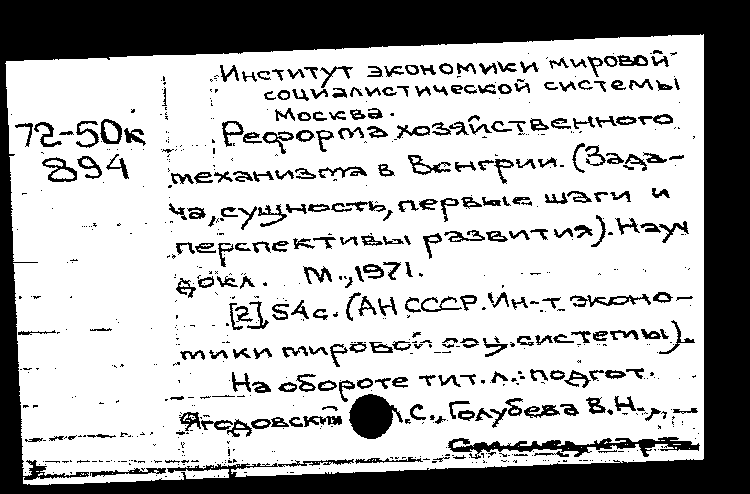 Институт экономики мировой
социалистической системы
Москва.
72-50к
894
Реформа хозяйственного
механизма в Венгрии. (Зада-
ча, сущность, первые шаги и
перспективы развития). Науч
докл. М., 1971.
[2], 54 с. (АН СССР. Ин-т эконо-
мики мировой соц. системы).
На обороте тит. л.: подгот.
Ягодовский Л.С., Голубева В.Н.,
См. след. карт.